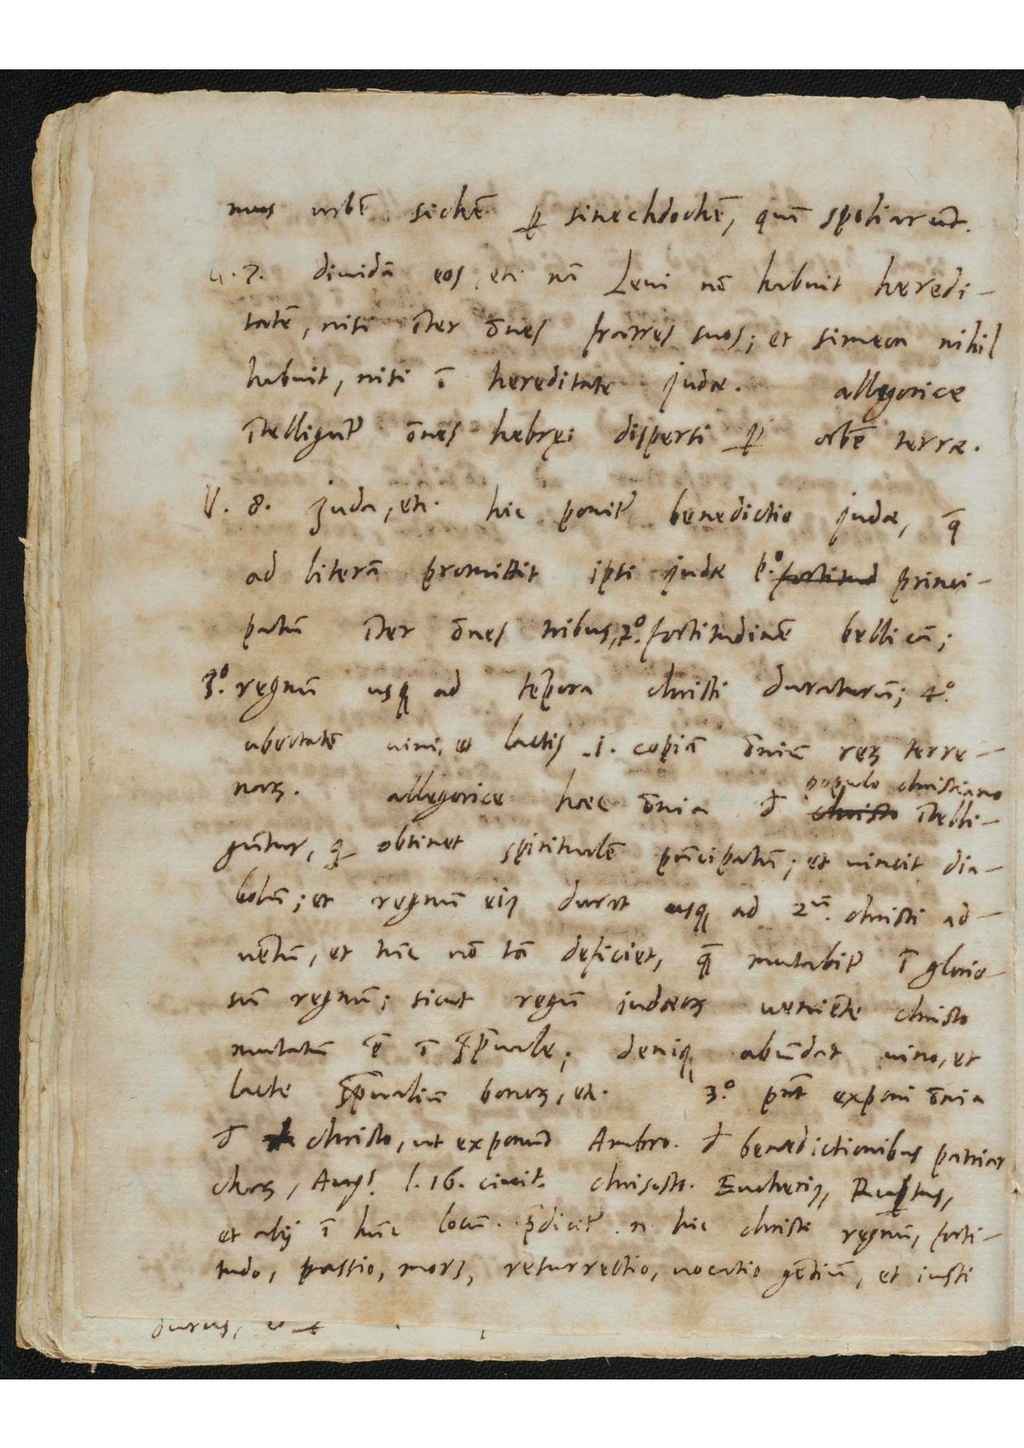 mus urbē sichē p sinechdochē, quā spoliarūt.
v. 7. diuidā eos, etc. nā Leui nō habuit heredi-
tatē, nisi īter ōnes fratres suos; et simeon nihil
habuit, nisi ī hereditate judæ. allegorice
ītelligūtr ōnes hebręi dispersi p orbē terræ.
V. 8. Juda, etc. hic ponitr benedictio judæ, q̄
ad literā promittit ipsi judæ p.º fortitud princi-
patū īter ōnes tribus, 2.º fortitudinē bellicā;
3.º regnū usq ad tēpora christi duraturū; 4.º
ubertatē uini, et lactis .i. copiā ōniū rerꝫ terre-
norꝫ. allegorice hæc ōnia đ populo christiano christo ītelli-
gūntur, q obtinet spiritualē prīcipatū; et uincit dia-
bolū; et regnū eiꝰ durat usq ad 2ū. christi ad-
uētū, et tūc nō tā deficiet, q̄ mutabitr ī glorio-
sū regnū; sicut regnū judæorꝫ ueniēte christo
mutatū ē ī spūale; deniq abūdat uino, et
lacte spūaliū bonorꝫ, etc. 3.º pnt exponi ōnia
đ christo, ut exponūt Ambro. đ benedictionibus patriar
charꝫ, Augt. l. 16. ciuit. chrisosto. Eucheriꝰ, Rup̄tus,
et alij ī hūc locū. p̄dicitr .n. hic christi regnū, forti-
tudo, passio, mors, resurrectio, uocatio gētiū, et iusti